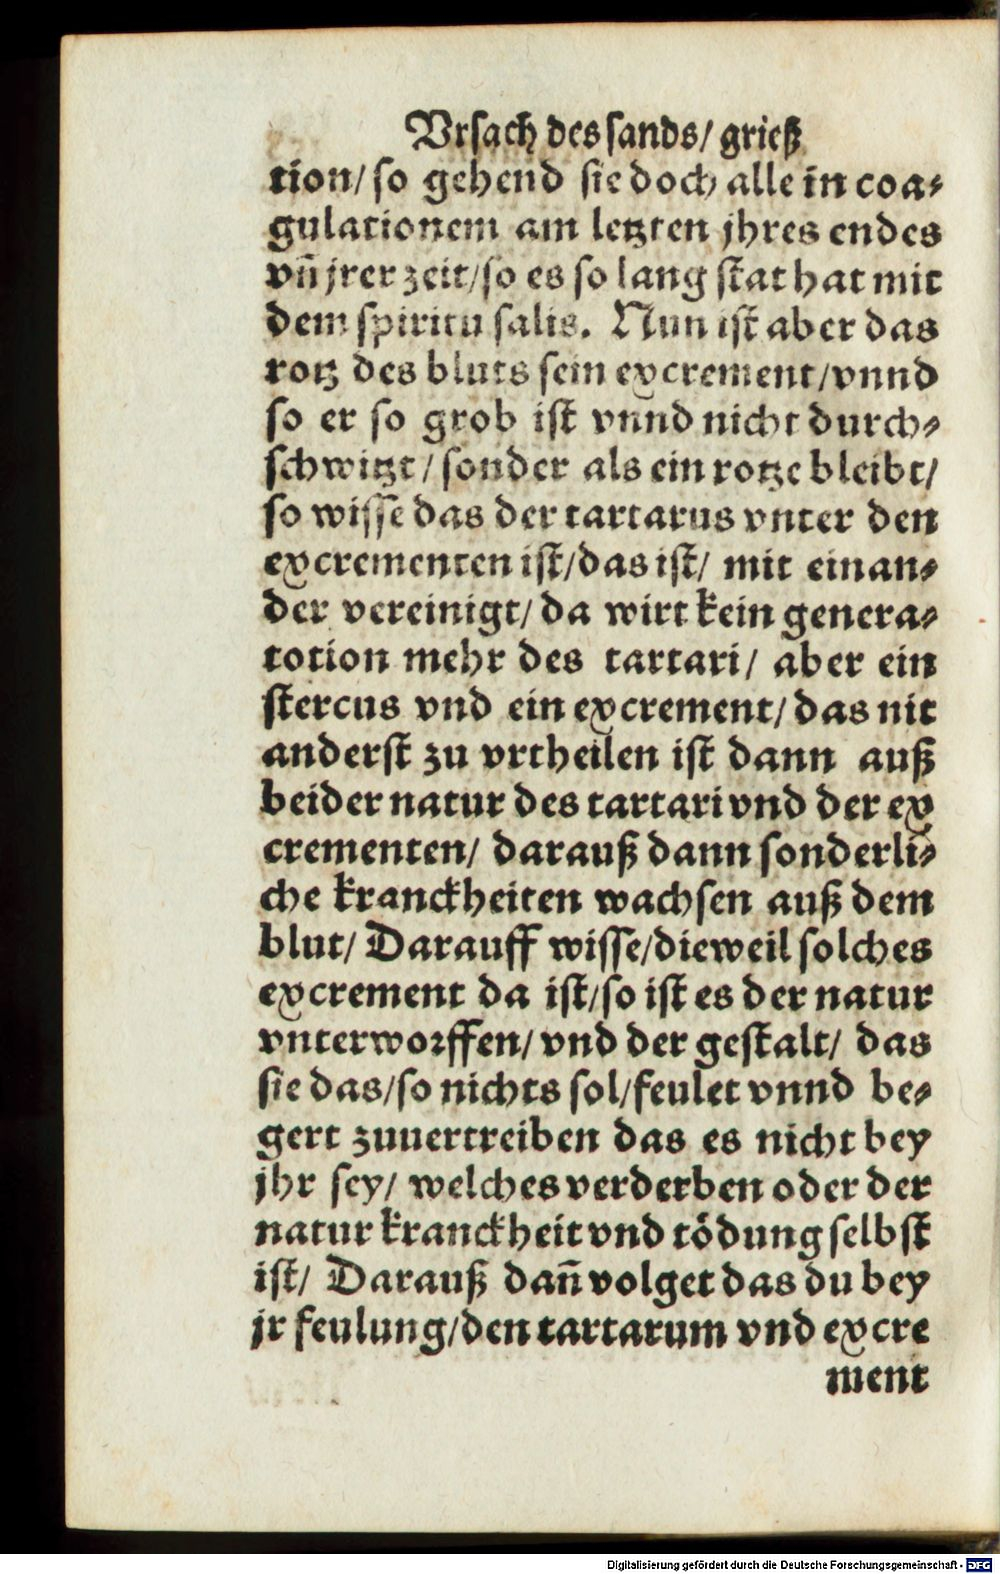 Vrsach des sands/ grieß
tion/ so gehend sie doch alle in coa⸗
gulationem am letzten jhres endes
vñ jrer zeit/ so es so lang stat hat mit
dem spiritu salis. Nun ist aber das
rotz des bluts sein excrement/ vnnd
so er so grob ist vnnd nicht durch⸗
schwitzt/ sonder als ein rotze bleibt/
so wisse das der tartarus vnter den
excrementen ist/ das ist/ mit einan⸗
der vereinigt/ da wirt kein genera⸗
totion mehr des tartari/ aber ein
stercus vnd ein excrement/ das nit
anderst zu vrtheilen ist dann auß
beider natur des tartari vnd der ex
crementen/ darauß dann sonderli⸗
che kranckheiten wachsen auß dem
blut/ Darauff wisse/ dieweil solches
excrement da ist/ so ist es der natur
vnterworffen/ vnd der gestalt/ das
sie das/ so nichts sol/ feulet vnnd be⸗
gert zuuertreiben das es nicht bey
jhr sey/ welches verderben oder der
natur kranckheit vnd tödung selbst
ist/ Darauß dañ volget das du bey
jr feulung/ den tartarum vnd excre
ment
Digitalisierung gefördert durch die Deutsche Forschungsgemeinschaft - DFG